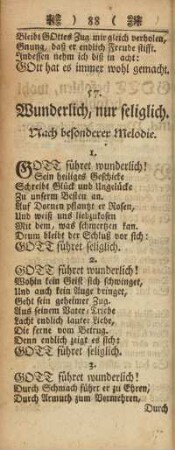 88
Bleibt GOttes Zug mir gleich verholen,
Gnung, daß er endlich Freude stifft.
Indessen nehm ich diß in acht:
GOtt hat es immer wohl gemacht.
57.
Wunderlich, nur seliglich.
Nach besonderer Melodie.
1.
GOTT führet wunderlich!
Sein heiliges Geschicke
Schreibt Glück und Ungelücke
Zu unserm Besten an.
Auf Dornen pflantzt er Rosen,
Und weiß uns liebzukosen
Mit dem, was schmertzen kan.
Drum bleibt der Schluß vor sich:
GOTT führet seliglich.
2.
GOTT führet wunderlich!
Wohin kein Geist sich schwinget,
Und auch kein Auge dringet,
Geht sein geheimer Zug.
Aus seinem Vater-Triebe
Lacht endlich lauter Liebe,
Die ferne vom Betrug.
Denn endlich zeigt es sich:
GOTT führet seliglich.
3.
GOTT führet wunderlich!
Durch Schmach führet er zu Ehren,
Durch Armuth zum Vermehren,
Durch